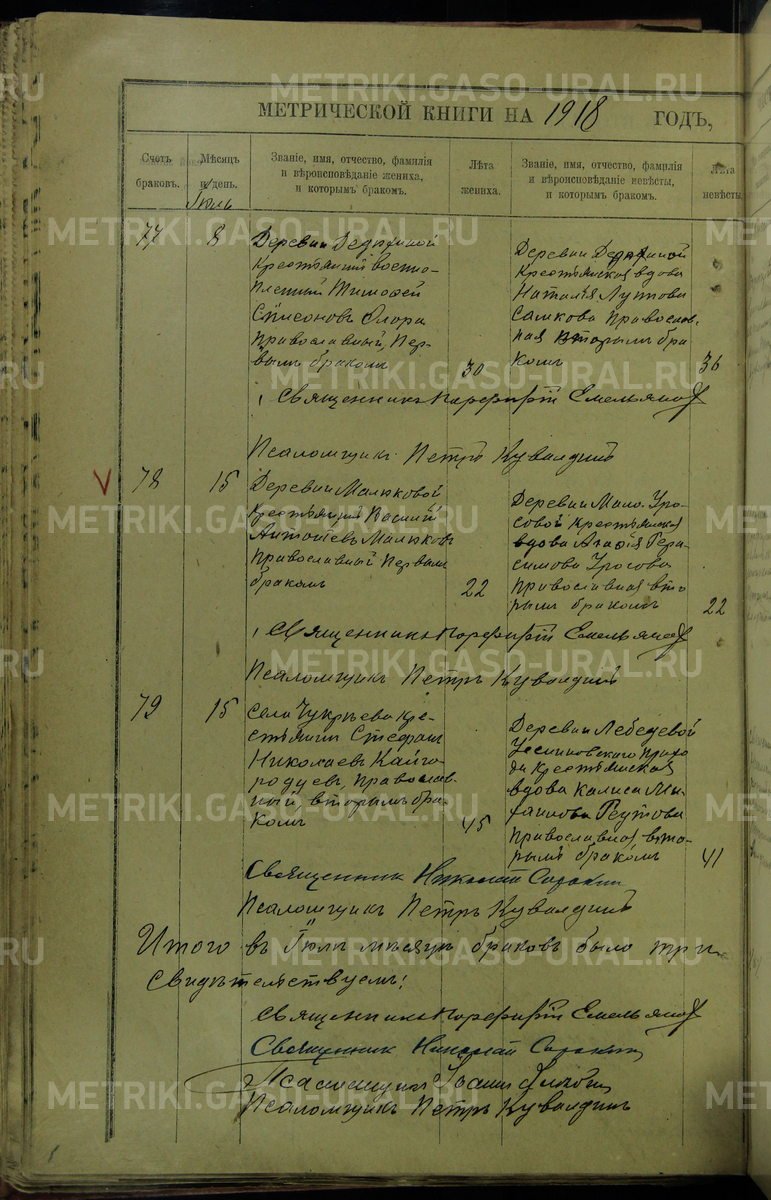 METRIKI.GASO-URAL.RU
МЕТРИЧЕСКОЙ КНИГИ НА 1918 ГОДЪ,
Счетъ браковъ.
Мѣсяцъ и день.
Званіе, имя, отчество, фамилія и вѣроисповѣданіе жениха, и которымъ бракомъ.
Лѣта жениха.
Званіе, имя, отчество, фамилія и вѣроисповѣданіе невѣсты, и которымъ бракомъ.
Лѣта невѣсты
Іюль
77
8
Деревни
крестьянинъ военно-
плѣнный Тимофей
православный, пер-
вымъ бракомъ
30
Деревни
крестьянская вдова
Наталія
православ-
ная вторымъ бра
комъ
36
Священникъ Порфирій Емельянов
Псаломщикъ Петръ Кувалдинъ
78
15
Деревни Малюковой
крестьянинъ Василій
Антоніевъ Малюковъ
православный первым
бракомъ
22
Деревни Мало-Тро-
совой крестьянская
вдова Агафія Гера-
симова
православная вто-
рымъ бракомъ
22
Священникъ Порфирій Емельянов
Псаломщикъ Петръ Кувалдинъ
79
15
Села Чукрѣева кре-
стьянинъ Стефанъ
Николаевъ Кайго-
родцевъ, православ-
ный, вторымъ бра-
комъ
45
Деревни Лебедевой
прихо
да крестьянская
вдова Калиса Ми-
хаилова Реутова
православная вто-
рымъ бракомъ
41
Священник Николай Сорокин
Псаломщикъ Петръ Кувалдинъ
Итого въ Іюлѣ мѣсяцѣ браковъ было три
Свидѣтельствуемъ:
Священникъ Порфирій Емельянов
Священник Николай Сорокин
Псаломщик Іоанн
Псаломщикъ Петръ Кувалдинъ